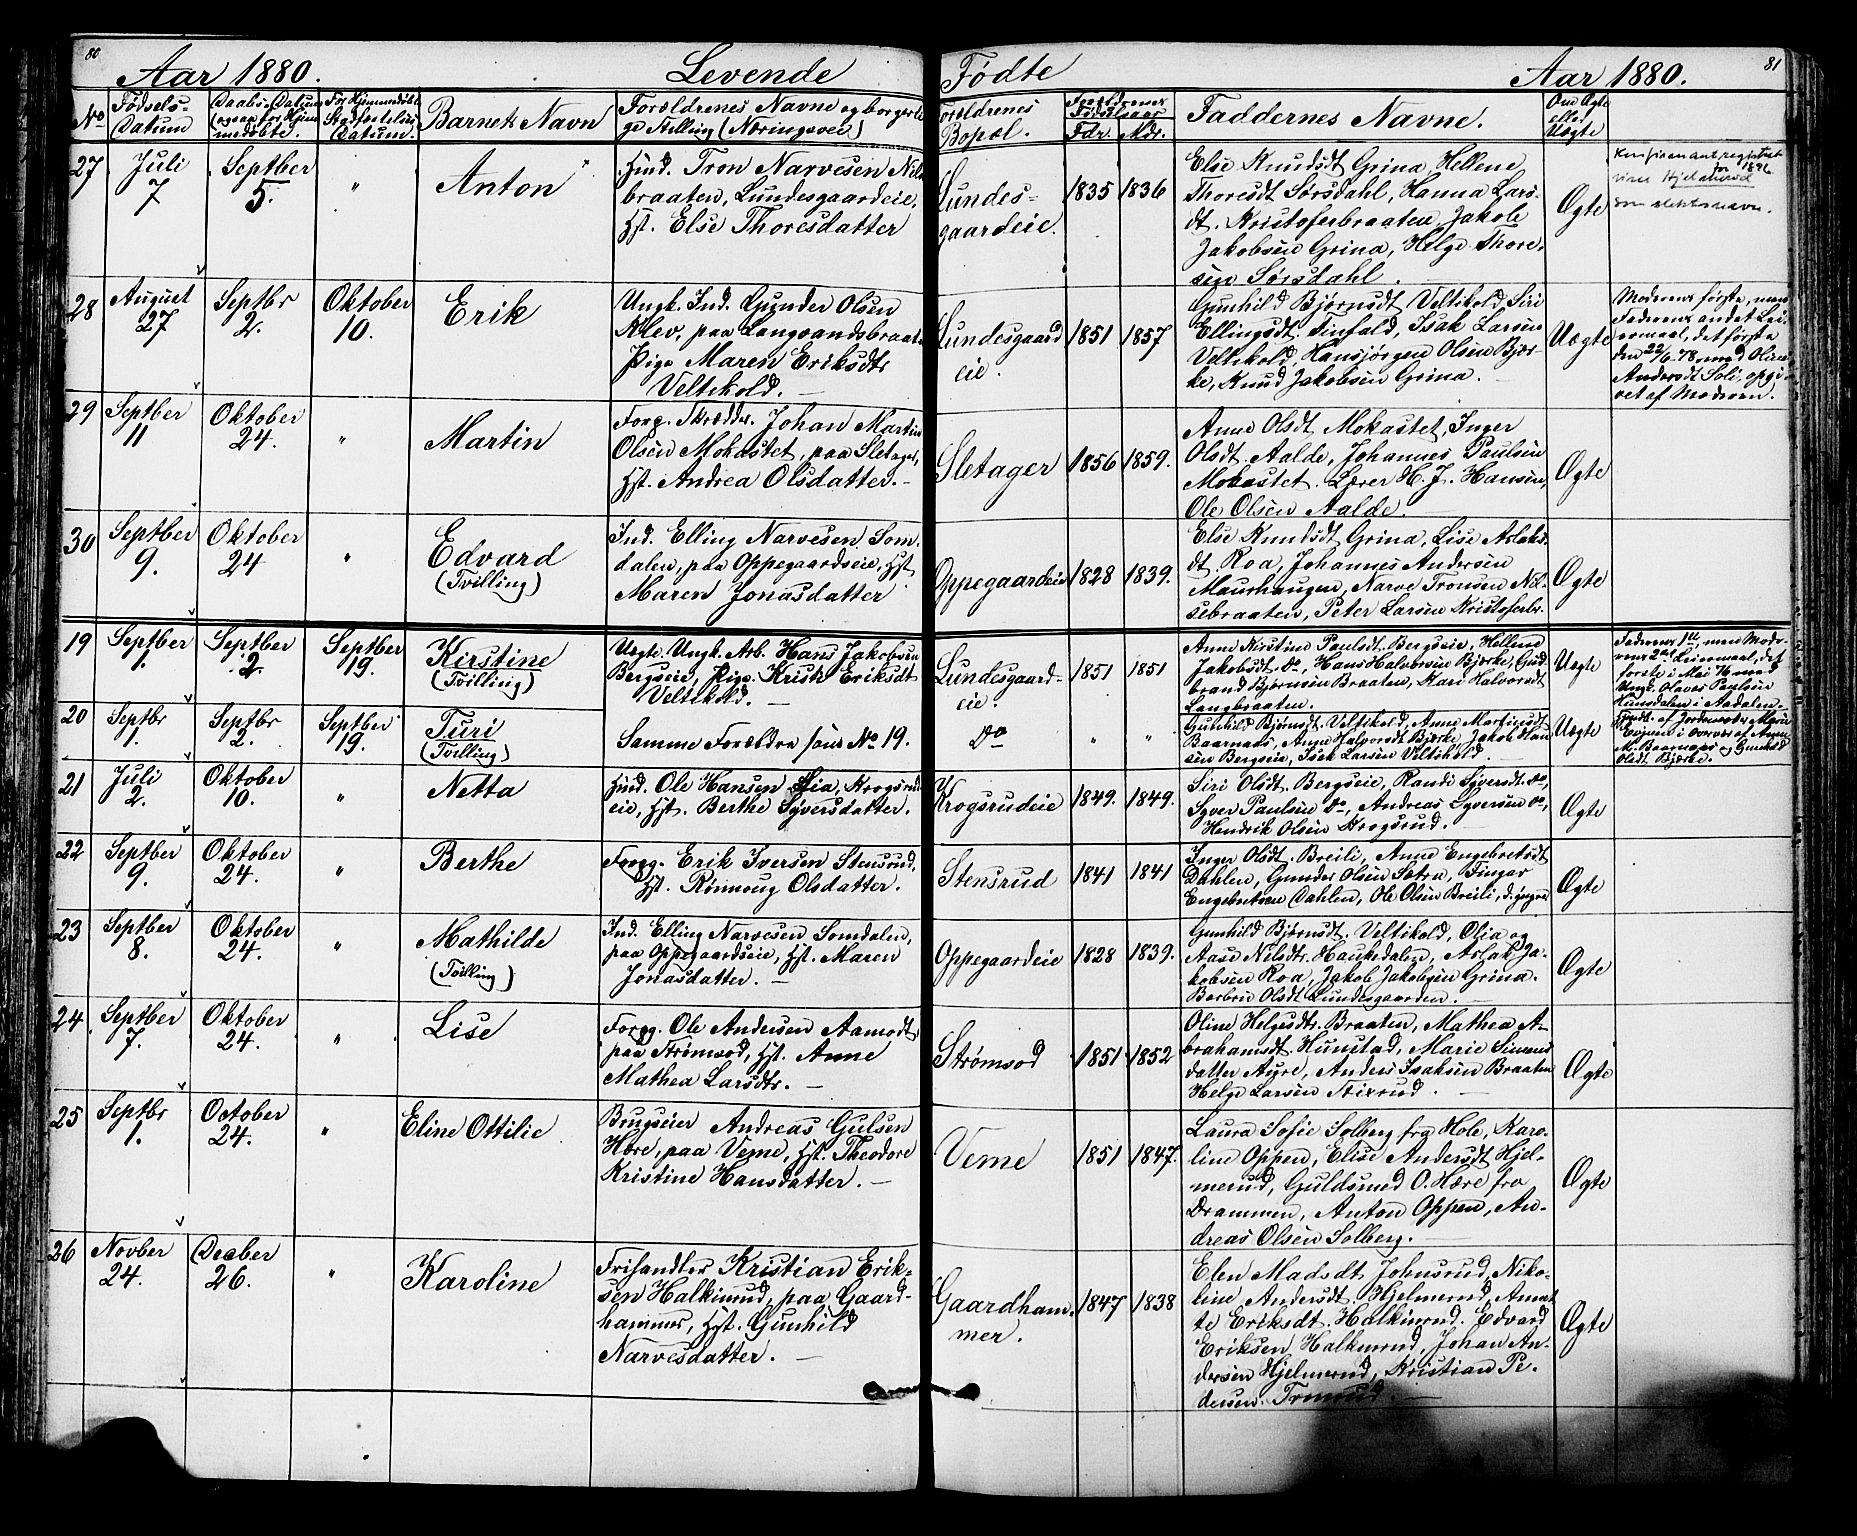 80
Aar 1880.
Levende
Fødte
Aar 1880.
81
No
Fødsels-
Datum
Daabs-Datum
Barnets Navn
Forældrenes Navne og borgerli-
ge Stilling (Næringsvei)
Forældrenes
Bopæl.
Forældrenes
Fødselsaar
Fdr. Mdr.
Faddernes Navne.
Om Ægte
eller
Uægte
27
Juli
7
Septber
5.
"
Anton
Hmd. Tron Narvesen Nils
braaten, Lundesgaardeie,
Hst. Else Thoresdatter
Lundes-
gaardeie.
1835
1836
Else Knudsdt Grina, Hellene
Thoresdt Sørsdahl, Hanna Lars-
dt. Kristoferbraaten, Jakob
Jakobsen Grina, Helge Thore-
sen Sørsdahl
Ægte
som slektsnavn.
28
August
27
Septbr
2.
Oktober
10.
Erik
Ungk. Ind. Gunder Olsen
Klev, paa Langvandsbraat
Pige Maren Eriksdtr
Veltikold.
Lundesgaard
eie.
1851
1857
Gunhild Bjørnsdt Veltikold, Siri
Ellingsdt. Finfald, Isak Larsen
Veltikold, Hansjørgen Olsen Bjør-
ke, Knud Jakobsen Grina.
Uægte
Moderens første, men
Faderens andet Lei-
ermaal, det første
den 22/6 78 med Oline
Andersdt Soli, opgi-
vet af Moderen.
29
Septber
11
Oktober
24.
"
Martin
Forp. Skrædder. Johan Martin
Olsen Mokastet, paa Sletager,
Hst. Andrea Olsdatter.
Sletager
1856
1859.
Anne Olsdt Mokastet, Inger
Olsdt. Aalde, Johannes Paulsen
Mokastet. Lærer H. J. Hansen,
Ole Olsen Aalde.
Ægte
30
Septber
9.
Oktober
24
"
Edvard
(Tvilling)
Ind. Elling Narvesen Som-
dalen, paa Oppegaardseie, Hst
Maren Jonasdatter
Oppegaardeie
1828
1839.
Else Knudsdt Grina, Lise Aslaks-
dt. Roa, Johannes Andersen
Maurhaugen, Narve Tronsen Nil-
sebraaten, Peter Larsen Kristoferbr.
Ægte
19
Septber
1.
Septber
2.
Septber
19.
Kirstine
(Tvilling)
Uægte. Ungk. Arb. Hans Jakobsen
Bergseie, Pige Kristi Eriksdt
Veltikold.
Lundesgaard-
eie.
1851
1851
Anne Kirstine Paulsdt. Bergseie, Hellene
Jakobsdt. Do, Hans Halvorsen Bjørke, Gud-
brand Bjørnsen Braaten, Kari Halvorsdt
Langbraaten.
Uægte
Faderens 1ste, men Mode-
rens 2det Leiermaal, det
første i Mai
Ungk. Olaves Paulsen
20
Septbr
1.
Septbr
2.
Septber
19.
Turi
(Tvilling)
Samme Forældre som No 19.
Do
"
"
Gunhild Bjørnsdt. Veltikold, Anne Martinsdt
Baarnaas, Anne Halvorsdt Bjørke, Jakob Han
sen Bergseie, Isak Larsen Veltikold.
Uægte
Olsdt. Bjørke.
21
Juli
2.
Oktober
10.
"
Netta
Hmd. Ole Hansen Lia, Krogsrud
eie, Hst. Berthe Syversdatter.
Krogsrudeie
1849.
1849.
Siri Olsdt. Bergseie, Randi Syversdt. Do,
Syver Paulsen Do, Andreas Syversen Do,
Hendrik Olsen Krogsrud.
Ægte
22
Septber
9.
Oktober
24.
"
Berthe
Forpg. Erik Iversen Stensrud,
Hst. Rønnoug Olsdatter.
Stensrud
1841
1841
Inger Olsdt. Breili, Anne Engebretsdt
Dahlen, Gunder Olsen Sætra, Fingar
Engebretsen Dahlen, Ole Olsen Breili, d. yngre
Ægte
23
Septber
8.
Oktober
24.
"
Mathilde
(Tvilling)
Ind. Elling Narvesen Somdalen,
paa Oppegaardseie, Hst. Maren
Jonasdatter.
Oppegaardeie
1828
1839.
Gunhild Bjørnsdt. Veltikold, Olia og
Aase Nilsdtr. Haukedalen, Aslak Ja-
kobsen Roa, Jakob Jakobsen Grina.
Berbrie Olsdt Lundesgaarden.
Ægte
24
Septber
7.
Oktober
24.
"
Lise
Forpg. Ole Andersen Aamodt,
paa Strømsod, Hst. Anne
Mathea Larsdtr.
Strømsod
1851
1852
Oline Helgesdtr. Braaten, Mathea A-
brahamsdt. Hunstad, Marie Simens
datter Ayre, Anders Isaksen Braaten
Helge Larsen Trixrud.
Ægte
25
Septbr
1.
October
24.
"
Eline Ottilie
Brugseier Andreas Gulsen
Hære, paa Veme, Hst. Theodore
Kristine Hansdatter.
Veme
1851
1847.
Laura Sofie Solberg fra Hole, Karo-
line Oppen, Elise Andersdt Hjel-
merud, Guldsmed O. Hære fra
Drammen, Anton Oppen, An-
dreas Olsen Solberg.
Ægte
26
Novber
24.
Decber
26.
"
Karoline
Frihandler Kristian Erik-
sen Halkinrud, paa Gaard-
hammer, Hst. Gunhild
Narvesdatter.
Gaardham-
mer.
1847
1838
Elen Madsdt Johnsrud, Niko-
line Andersdt. Hjelmerud, Annet
te Eriksdt. Halkinrud. Edvard
Eriksen Halkinrud, Johan An-
dersen Hjelmerud, Kristian Pe-
dersen.
Ægte